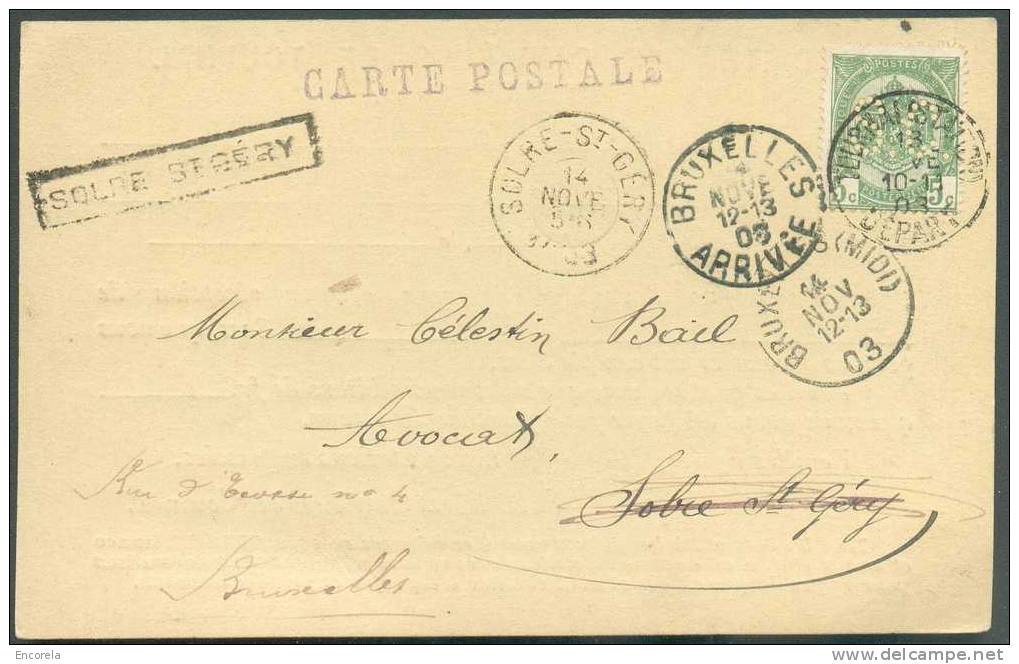 CARTE POSTALE
SOLRE ST GÉRY
SOLRE-ST-GÉRY
14
NOVE
03
BRUXELLES
NOVE
12-13
03
ARRIVÉE
POSTES
5c 5c
13
10-1
03
DÉPART
BRUXELLES (MIDI)
14
NOV
12-13
03
Monsieur Célestin Bail
Avocat,
Solre St Géry
Rue d'Ecosse no 4
Bruxelles
Encorela
www.delcampe.net